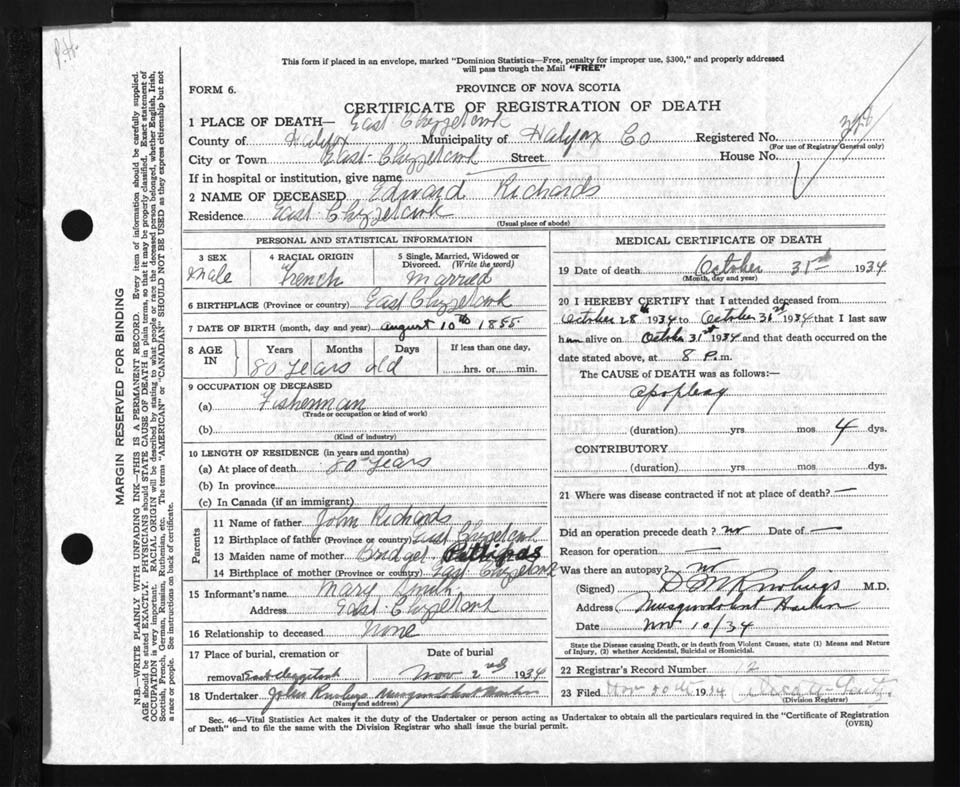 P.H.
This form if placed in an envelope, marked "Dominion Statistics—Free, penalty for improper use, $300," and properly addressed
will pass through the Mail "FREE"
FORM 6.
PROVINCE OF NOVA SCOTIA
CERTIFICATE OF REGISTRATION OF DEATH
1 PLACE OF DEATH— East Chezzetcook
County of Halifax Municipality of Halifax Co Registered No.
(For use of Registrar General only)
City or Town East Chezzetcook Street House No.
If in hospital or institution, give name
2 NAME OF DECEASED Edward Richards
Residence East Chezzetcook
(Usual place of abode)
PERSONAL AND STATISTICAL INFORMATION
3 SEX Male
4 RACIAL ORIGIN French
5 Single, Married, Widowed or Divorced. (Write the word) Married
6 BIRTHPLACE (Province or country) East Chezzetcook
7 DATE OF BIRTH (month, day and year) August 10th 1855
8 AGE IN Years Months Days If less than one day,
80 Years old hrs. or min.
9 OCCUPATION OF DECEASED
(a) Fisherman
(Trade or occupation or kind of work)
(b)
(Kind of industry)
10 LENGTH OF RESIDENCE (in years and months)
(a) At place of death 80 Years
(b) In province
(c) In Canada (if an immigrant)
Parents
11 Name of father John Richards
12 Birthplace of father (Province or country) East Chezzetcook
13 Maiden name of mother Bridget
14 Birthplace of mother (Province or country) East Chezzetcook
15 Informant's name Mary
Address East Chezzetcook
16 Relationship to deceased None
17 Place of burial, cremation or removal East Chezzetcook
Date of burial Nov 2nd 1934
18 Undertaker John Musquodoboit Harbor
(Name and address)
MEDICAL CERTIFICATE OF DEATH
19 Date of death October 31st 1934
(Month, day and year)
20 I HEREBY CERTIFY that I attended deceased from
October 28th 1934 to October 31st 1934 that I last saw
him alive on October 31st 1934 and that death occurred on the
date stated above, at 8 P.m.
The CAUSE OF DEATH was as follows:—
Apoplexy
(duration) yrs mos 4 dys.
CONTRIBUTORY
(duration) yrs. mos dys.
21 Where was disease contracted if not at place of death? —
Did an operation precede death? no Date of —
Reason for operation —
Was there an autopsy? no
(Signed) D M Rowlings M.D.
Address Musquodoboit Harbor
Date Nov 10/34
State the Disease causing Death, or in death from Violent Causes, state (1) Means and Nature
of Injury, (2) whether Accidental, Suicidal or Homicidal.
22 Registrar's Record Number 2
23 Filed Nov 1934
(Division Registrar)
Sec. 46—Vital Statistics Act makes it the duty of the Undertaker or person acting as Undertaker to obtain all the particulars required in the "Certificate of Registration
of Death" and to file the same with the Division Registrar who shall issue the burial permit.
(OVER)
MARGIN RESERVED FOR BINDING
N.B.—WRITE PLAINLY WITH UNFADING INK—THIS IS A PERMANENT RECORD. Every item of information should be carefully supplied.
AGE should be stated EXACTLY. PHYSICIANS should STATE CAUSE OF DEATH in plain terms, so that it may be properly classified. Exact statement of
OCCUPATION is very important. RACIAL ORIGIN will be described by stating to what people or race the deceased person belonged, whether English, Irish,
Scottish, French, German, Russian, Ruthenian, etc. The terms "AMERICAN" or "CANADIAN" SHOULD NOT BE USED as they express citizenship but not
a race or people. See instructions on back of certificate.